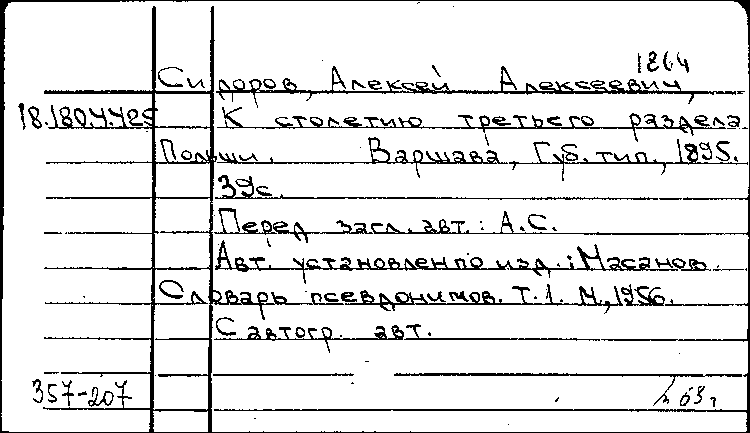 1864
Сидоров, Алексей Алексеевич,
18.180.4.425 К столетию третьего раздела
Польши. Варшава, Губ. тип., 1895.
39с.
Перед загл. авт.: А.С.
Авт. установлен по изд.: Масанов.
Словарь псевдонимов. Т.1. М., 1956.
С автогр. авт.
357-207